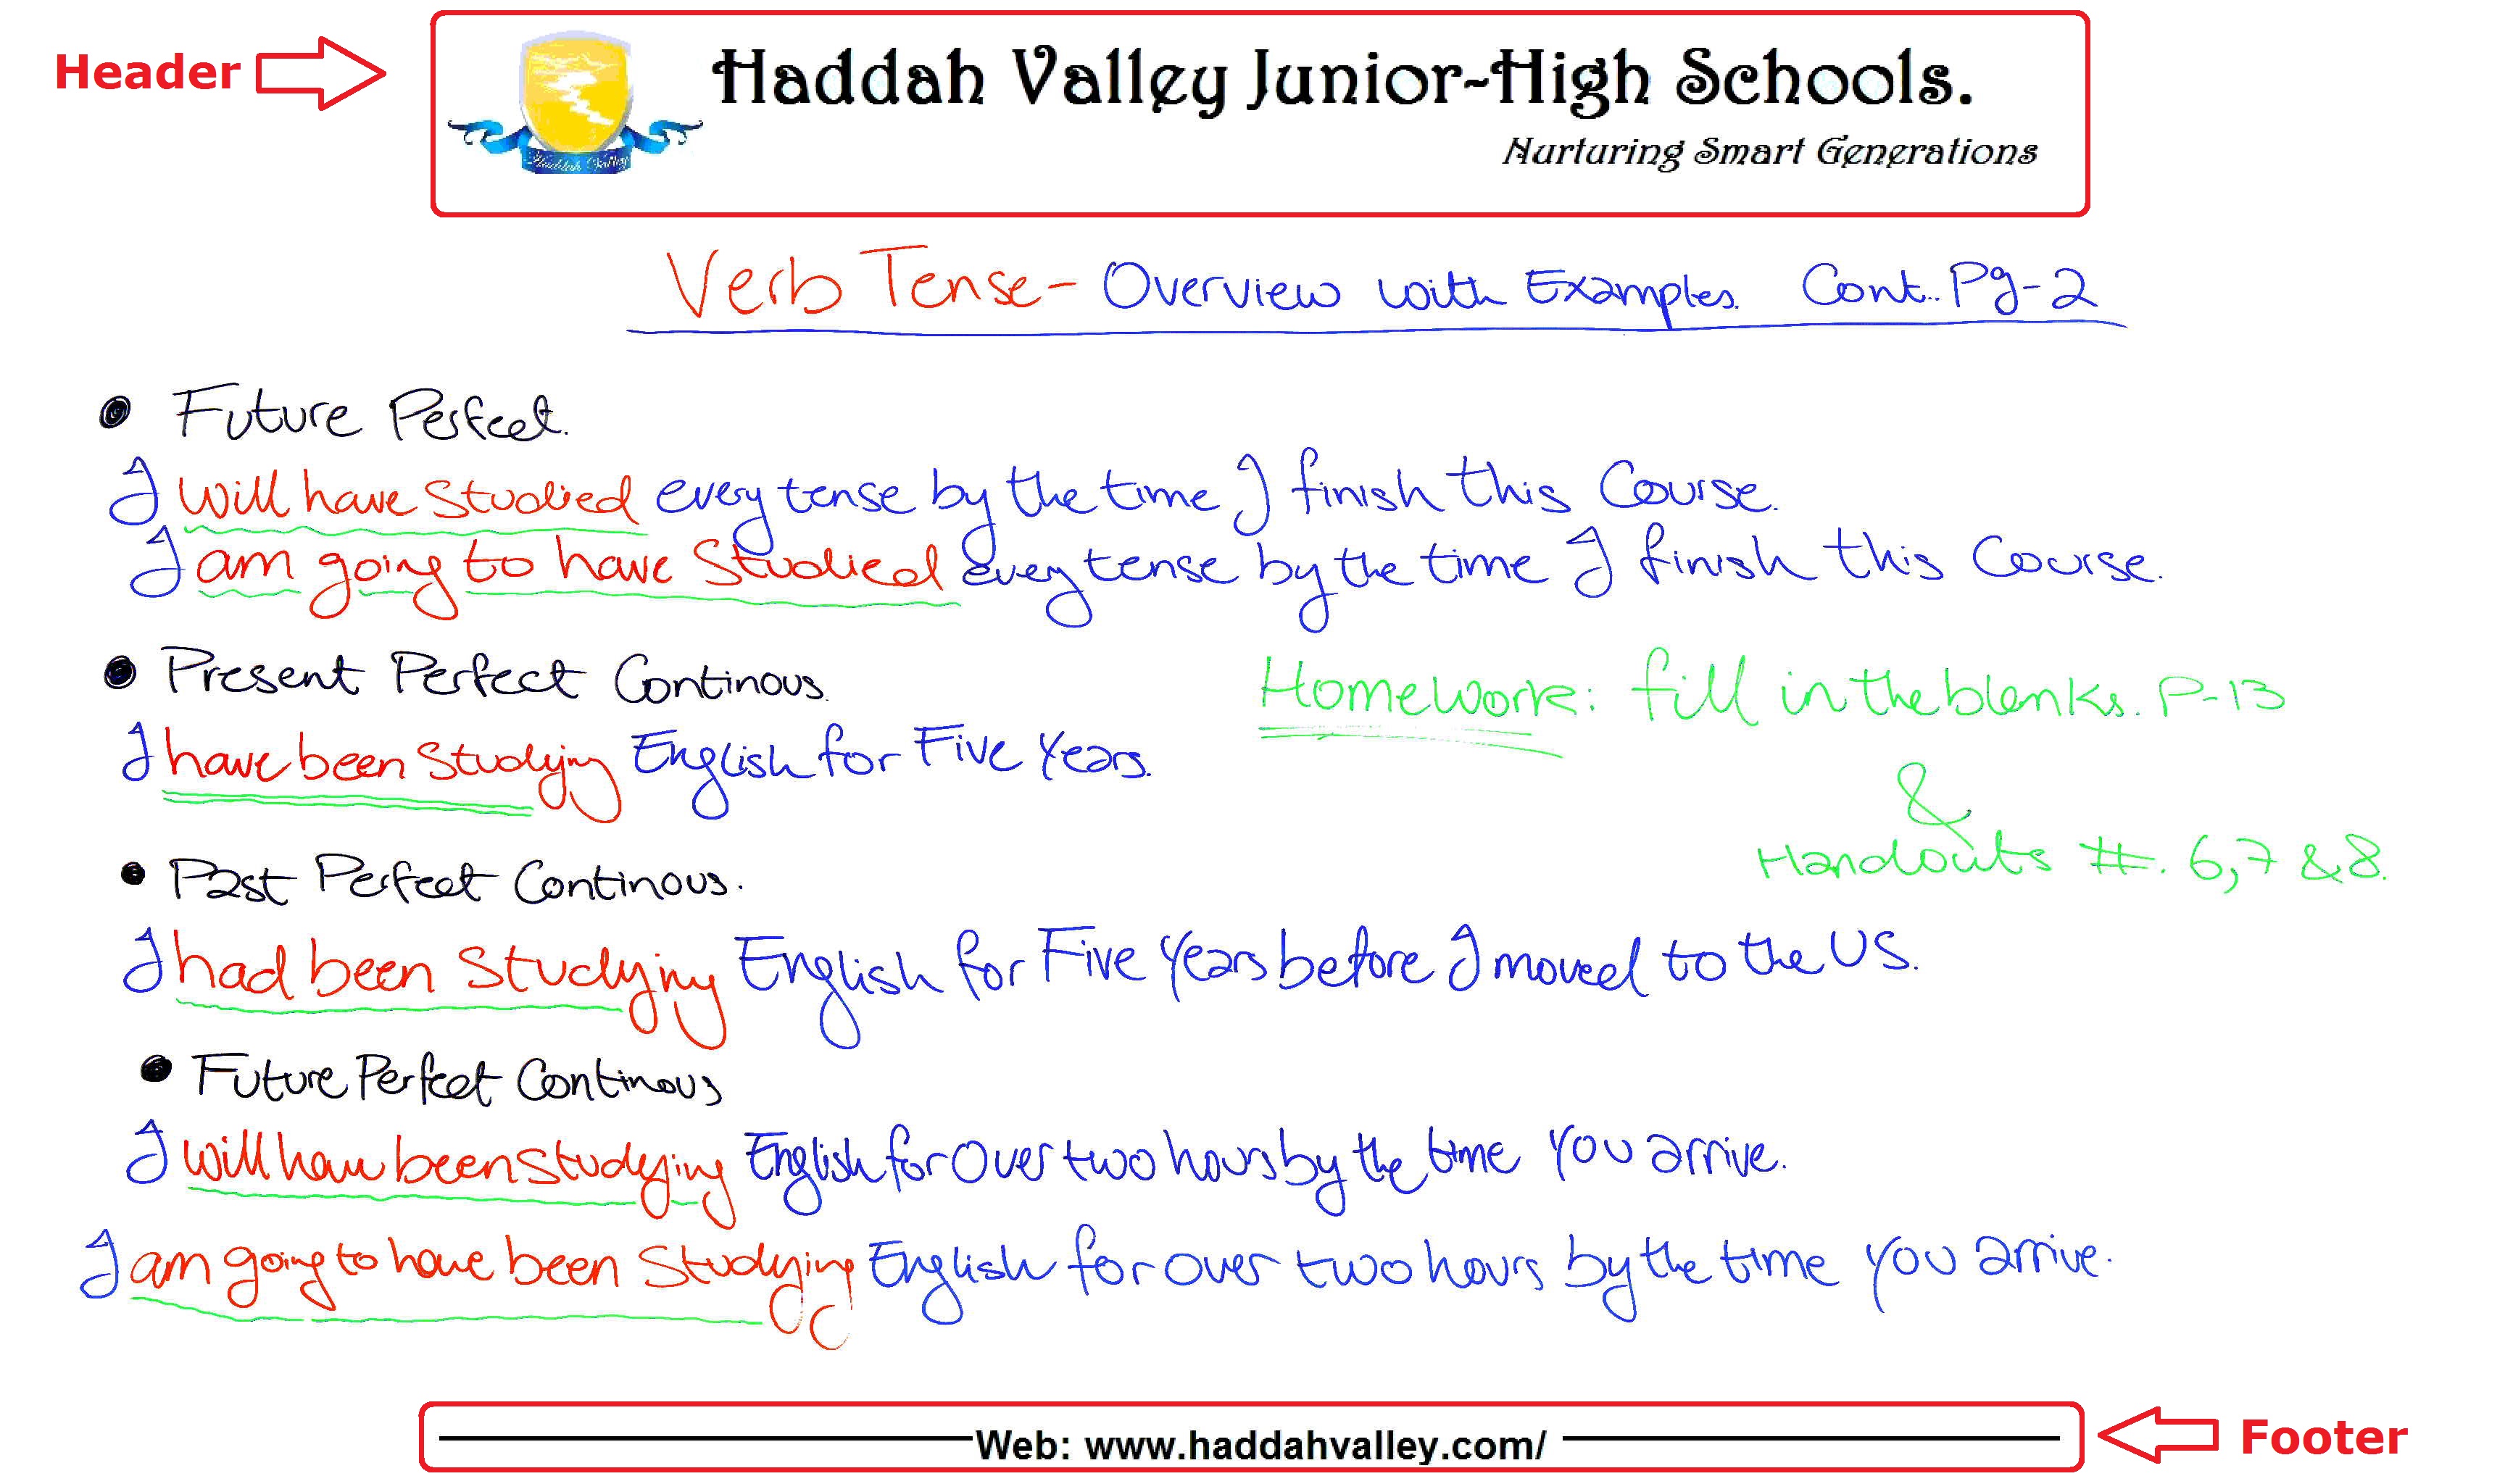 Header
Haddah Valley Junior-High Schools.
Nurturing Smart Generations
Haddah Valley
Verb Tense - Overview with Examples. Cont.. Pg-2
• Future Perfect.
I will have studied every tense by the time I finish this Course.
I am going to have studied every tense by the time I finish this Course.
• Present Perfect Continous.
Homework: fill in the blanks. P-13
I have been studying English for Five Years.
&
Handouts #. 6,7 & 8.
• Past Perfect Continous.
I had been studying English for Five Years before I moved to the US.
• Future Perfect Continous
I will have been studying English for over two hours by the time you arrive.
I am going to have been studying English for over two hours by the time you arrive.
Web: www.haddahvalley.com/
Footer